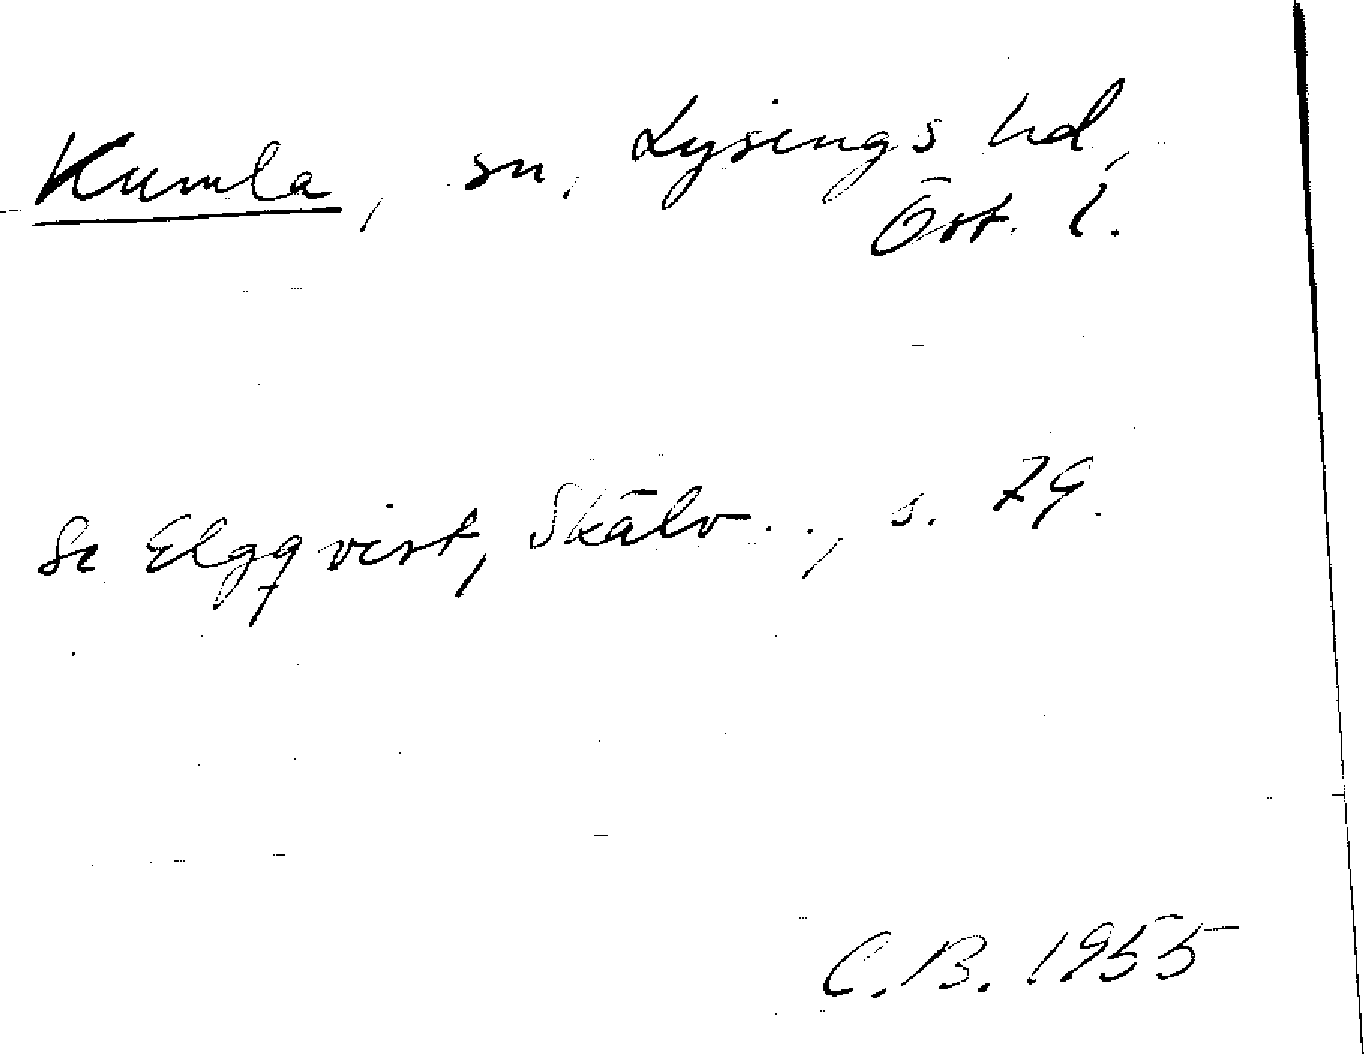 Kumla, sn, Lysings hd,
Öst. l.
Se Elgqvist, Skälv.., s. 79.
C.B. 1955